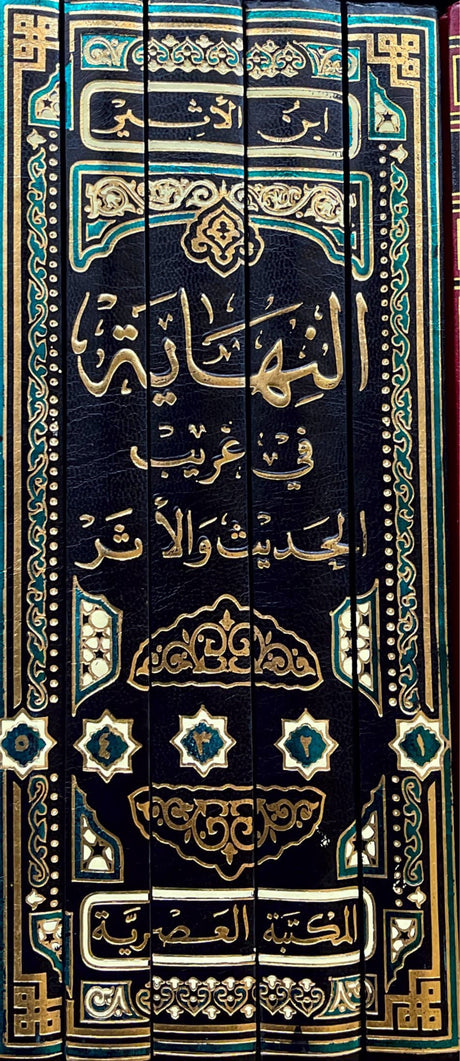 ابنُ الأثِيرِ
النِهَايَة
في غَريب
الحَديثِ وَالأثَرْ
١ ٢ ٣ ٤ ٥
المكتبة العصريَّة